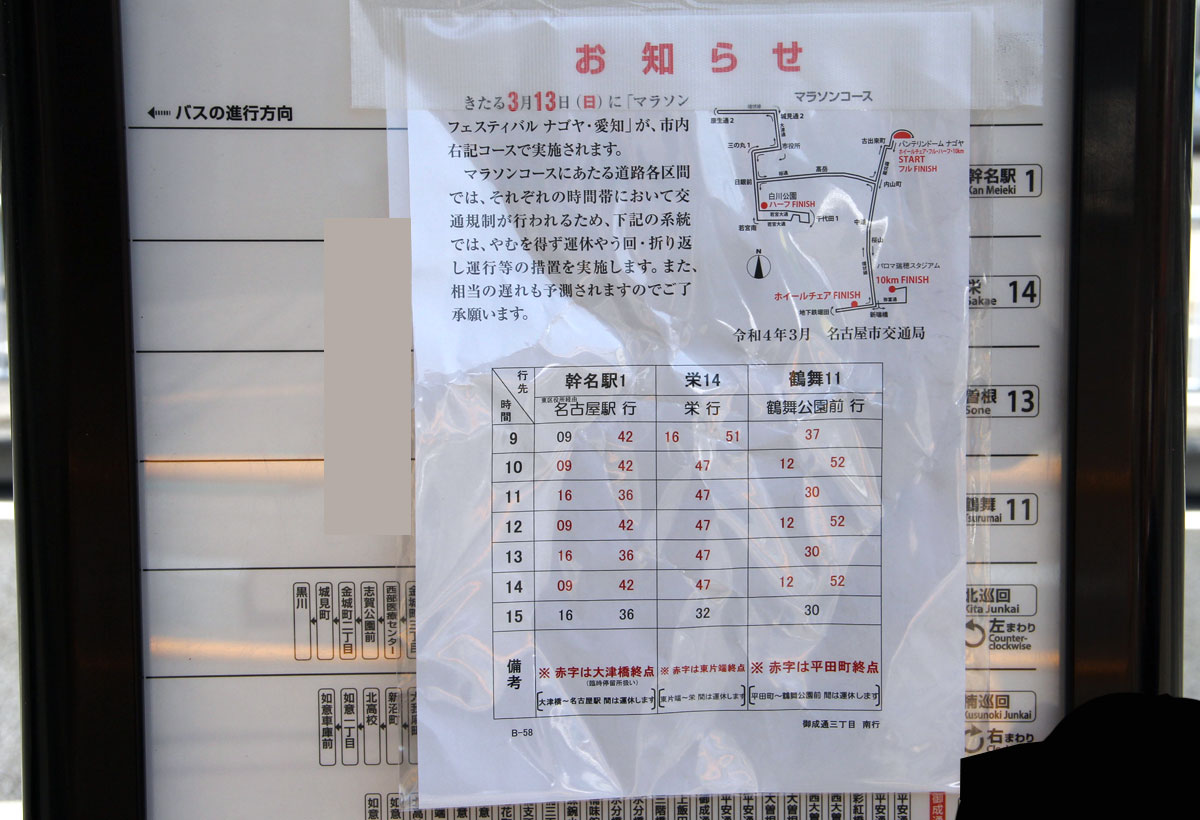 お知らせ
きたる3月13日(日)に「マラソン
フェスティバル ナゴヤ・愛知」が、市内
右記コースで実施されます。
マラソンコースにあたる道路各区間
では、それぞれの時間帯において交
通規制が行われるため、下記の系統
では、やむを得ず運休やう回・折り返
し運行等の措置を実施します。また、
相当の遅れも予測されますのでご了
承願います。
マラソンコース
庚生通2
城見通2
三の丸1
市役所
古出来町
バンテリンドーム ナゴヤ
ホイールチェア・フル・ハーフ・10km
START
フル FINISH
日銀前
高岳
内山町
白川公園
ハーフ FINISH
若宮大通
若宮大通
若宮南
千代田1
中道
桜山
N
パロマ瑞穂スタジアム
10km FINISH
ホイールチェア FINISH
地下鉄堀田
新瑞橋
令和4年3月 名古屋市交通局
行先
時間
幹名駅1 栄14 鶴舞11
東区役所経由
名古屋駅 行 栄 行 鶴舞公園前 行
9 09 42 16 51 37
10 09 42 47 12 52
11 16 36 47 30
12 09 42 47 12 52
13 16 36 47 30
14 09 42 47 12 52
15 16 36 32 30
備考
※ 赤字は大津橋終点
(臨時停留所扱い)
大津橋~名古屋駅 間は運休します
※ 赤字は東片端終点
東片端~栄 間は運休します
※ 赤字は平田町終点
平田町~鶴舞公園前 間は運休します
B-58
御成通三丁目 南行
バスの進行方向
幹名駅 1
Kan Meieki
栄 14
Sakae
曽根 13
Sone
鶴舞 11
Tsurumai
北巡回
Kita Junkai
左まわり
Counter-
clockwise
楠巡回
Kusunoki Junkai
右まわり
黒川
城見町
金城町二丁目
志賀公園前
西部医療センター
金城町三丁目
如意車庫前
如意一丁目
北高校
新沼町
如意
如意